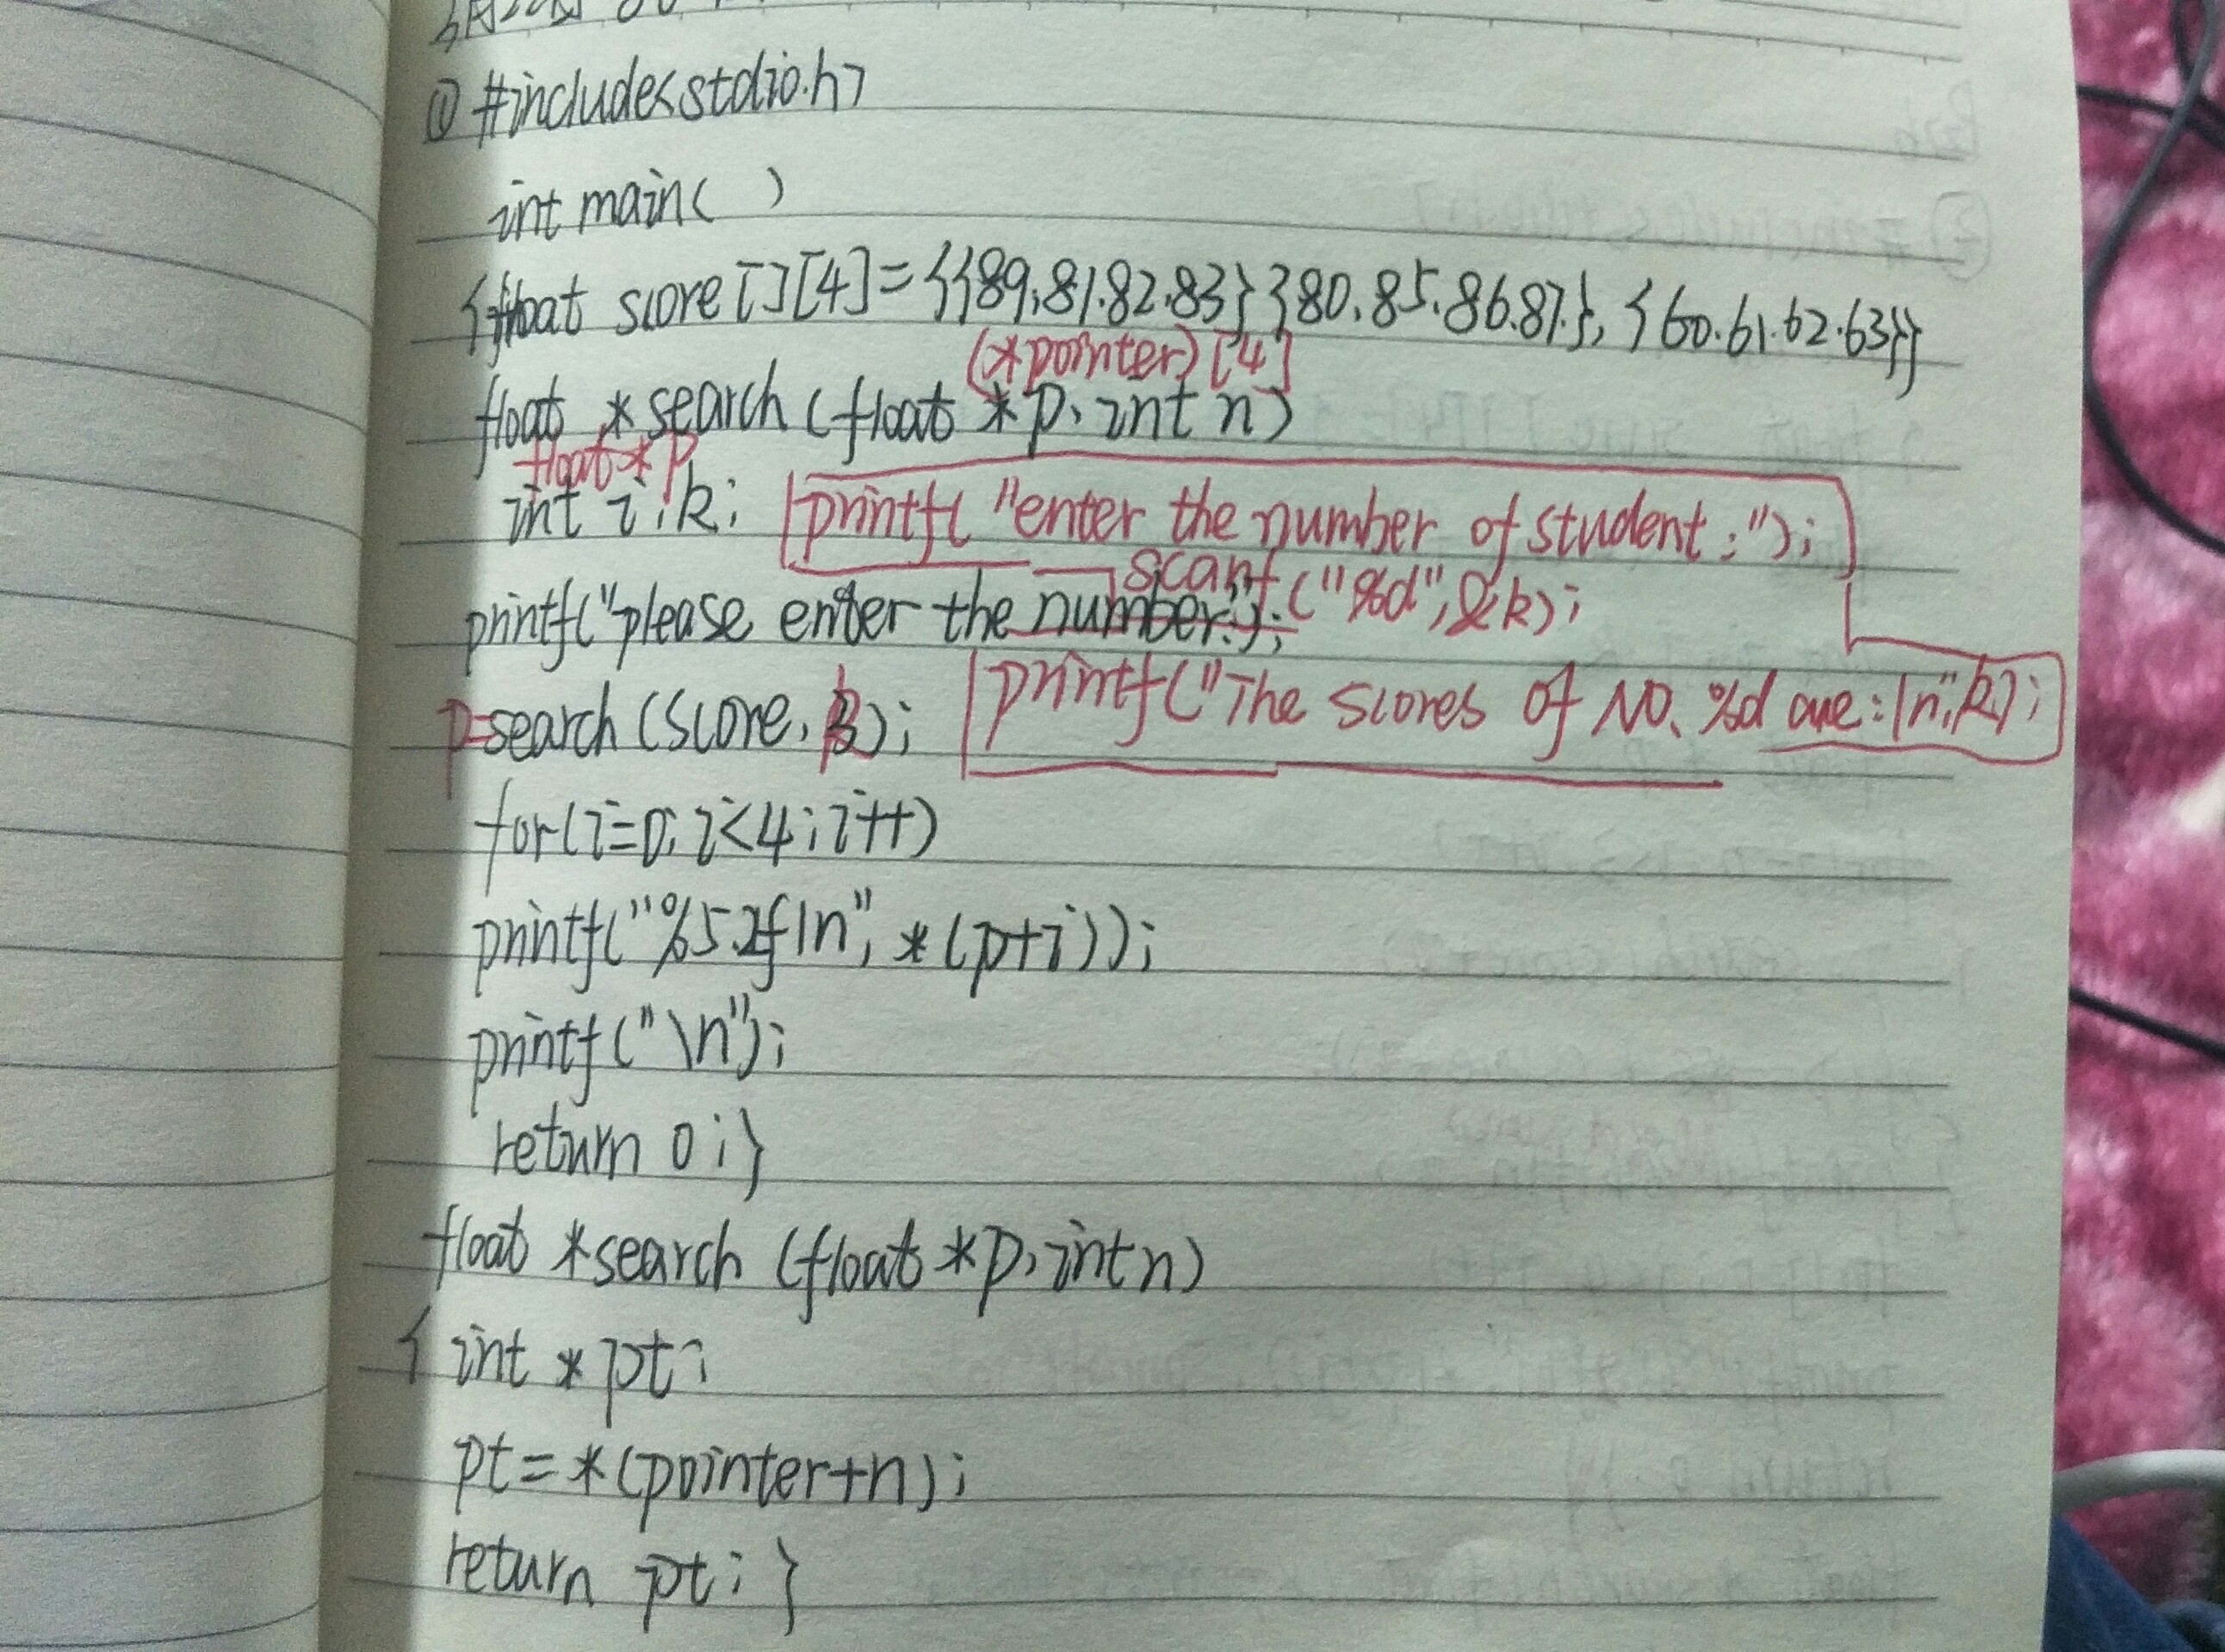 ① #include<stdio.h>
int main( )
{float score[][4]={{89.81.82.83}{80.85.86.87.},{60.61.62.63}}
(*pointer)[4]
float *search(float *p, int n)
float *p
int i,k; printf("enter the number of student:");
scanf("%d",&k);
printf("please enter the number:");
p=search(score, k); printf("The scores of NO. %d are:\n",k);
for(i=0;i<4;i++)
printf("%5.2f\n", *(p+i));
printf("\n");
return 0;}
float *search (float *p, int n)
{ int *pt;
pt=*(pointer+n);
return pt; }